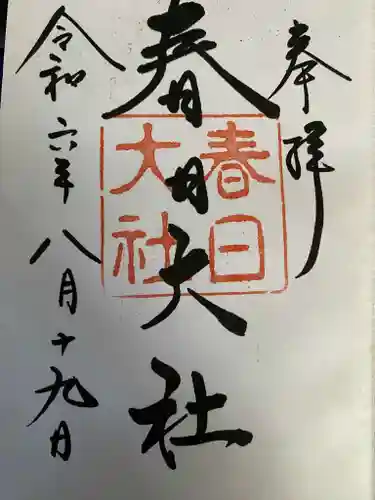 奉拝
春日大社
春日
大社
令和六年八月十九日